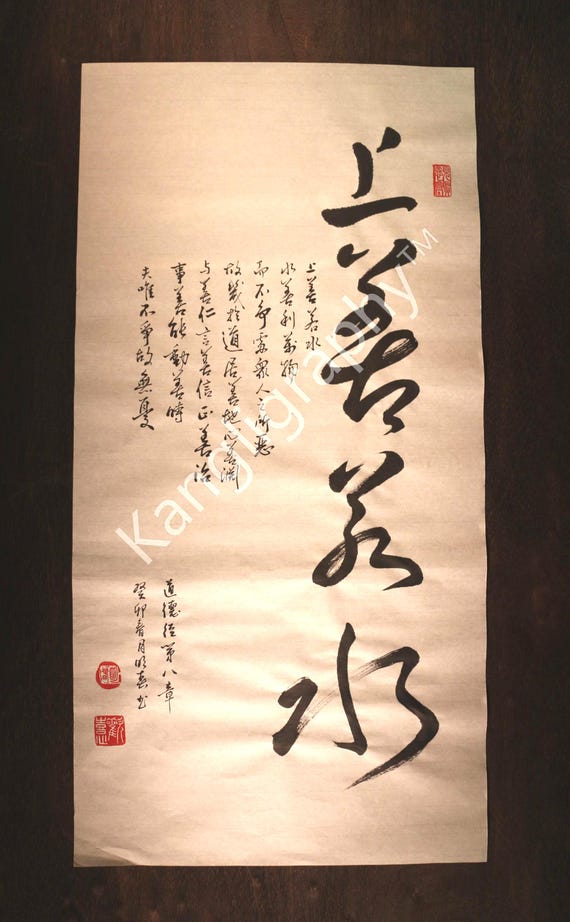 上善若水
上善若水
水善利萬物
而不争處衆人之所惡
故幾於道居善地心善淵
与善仁言善信正善治
事善能動善時
夫唯不争故無憂
道德经第八章
癸卯春月明书
Kangligraphy™